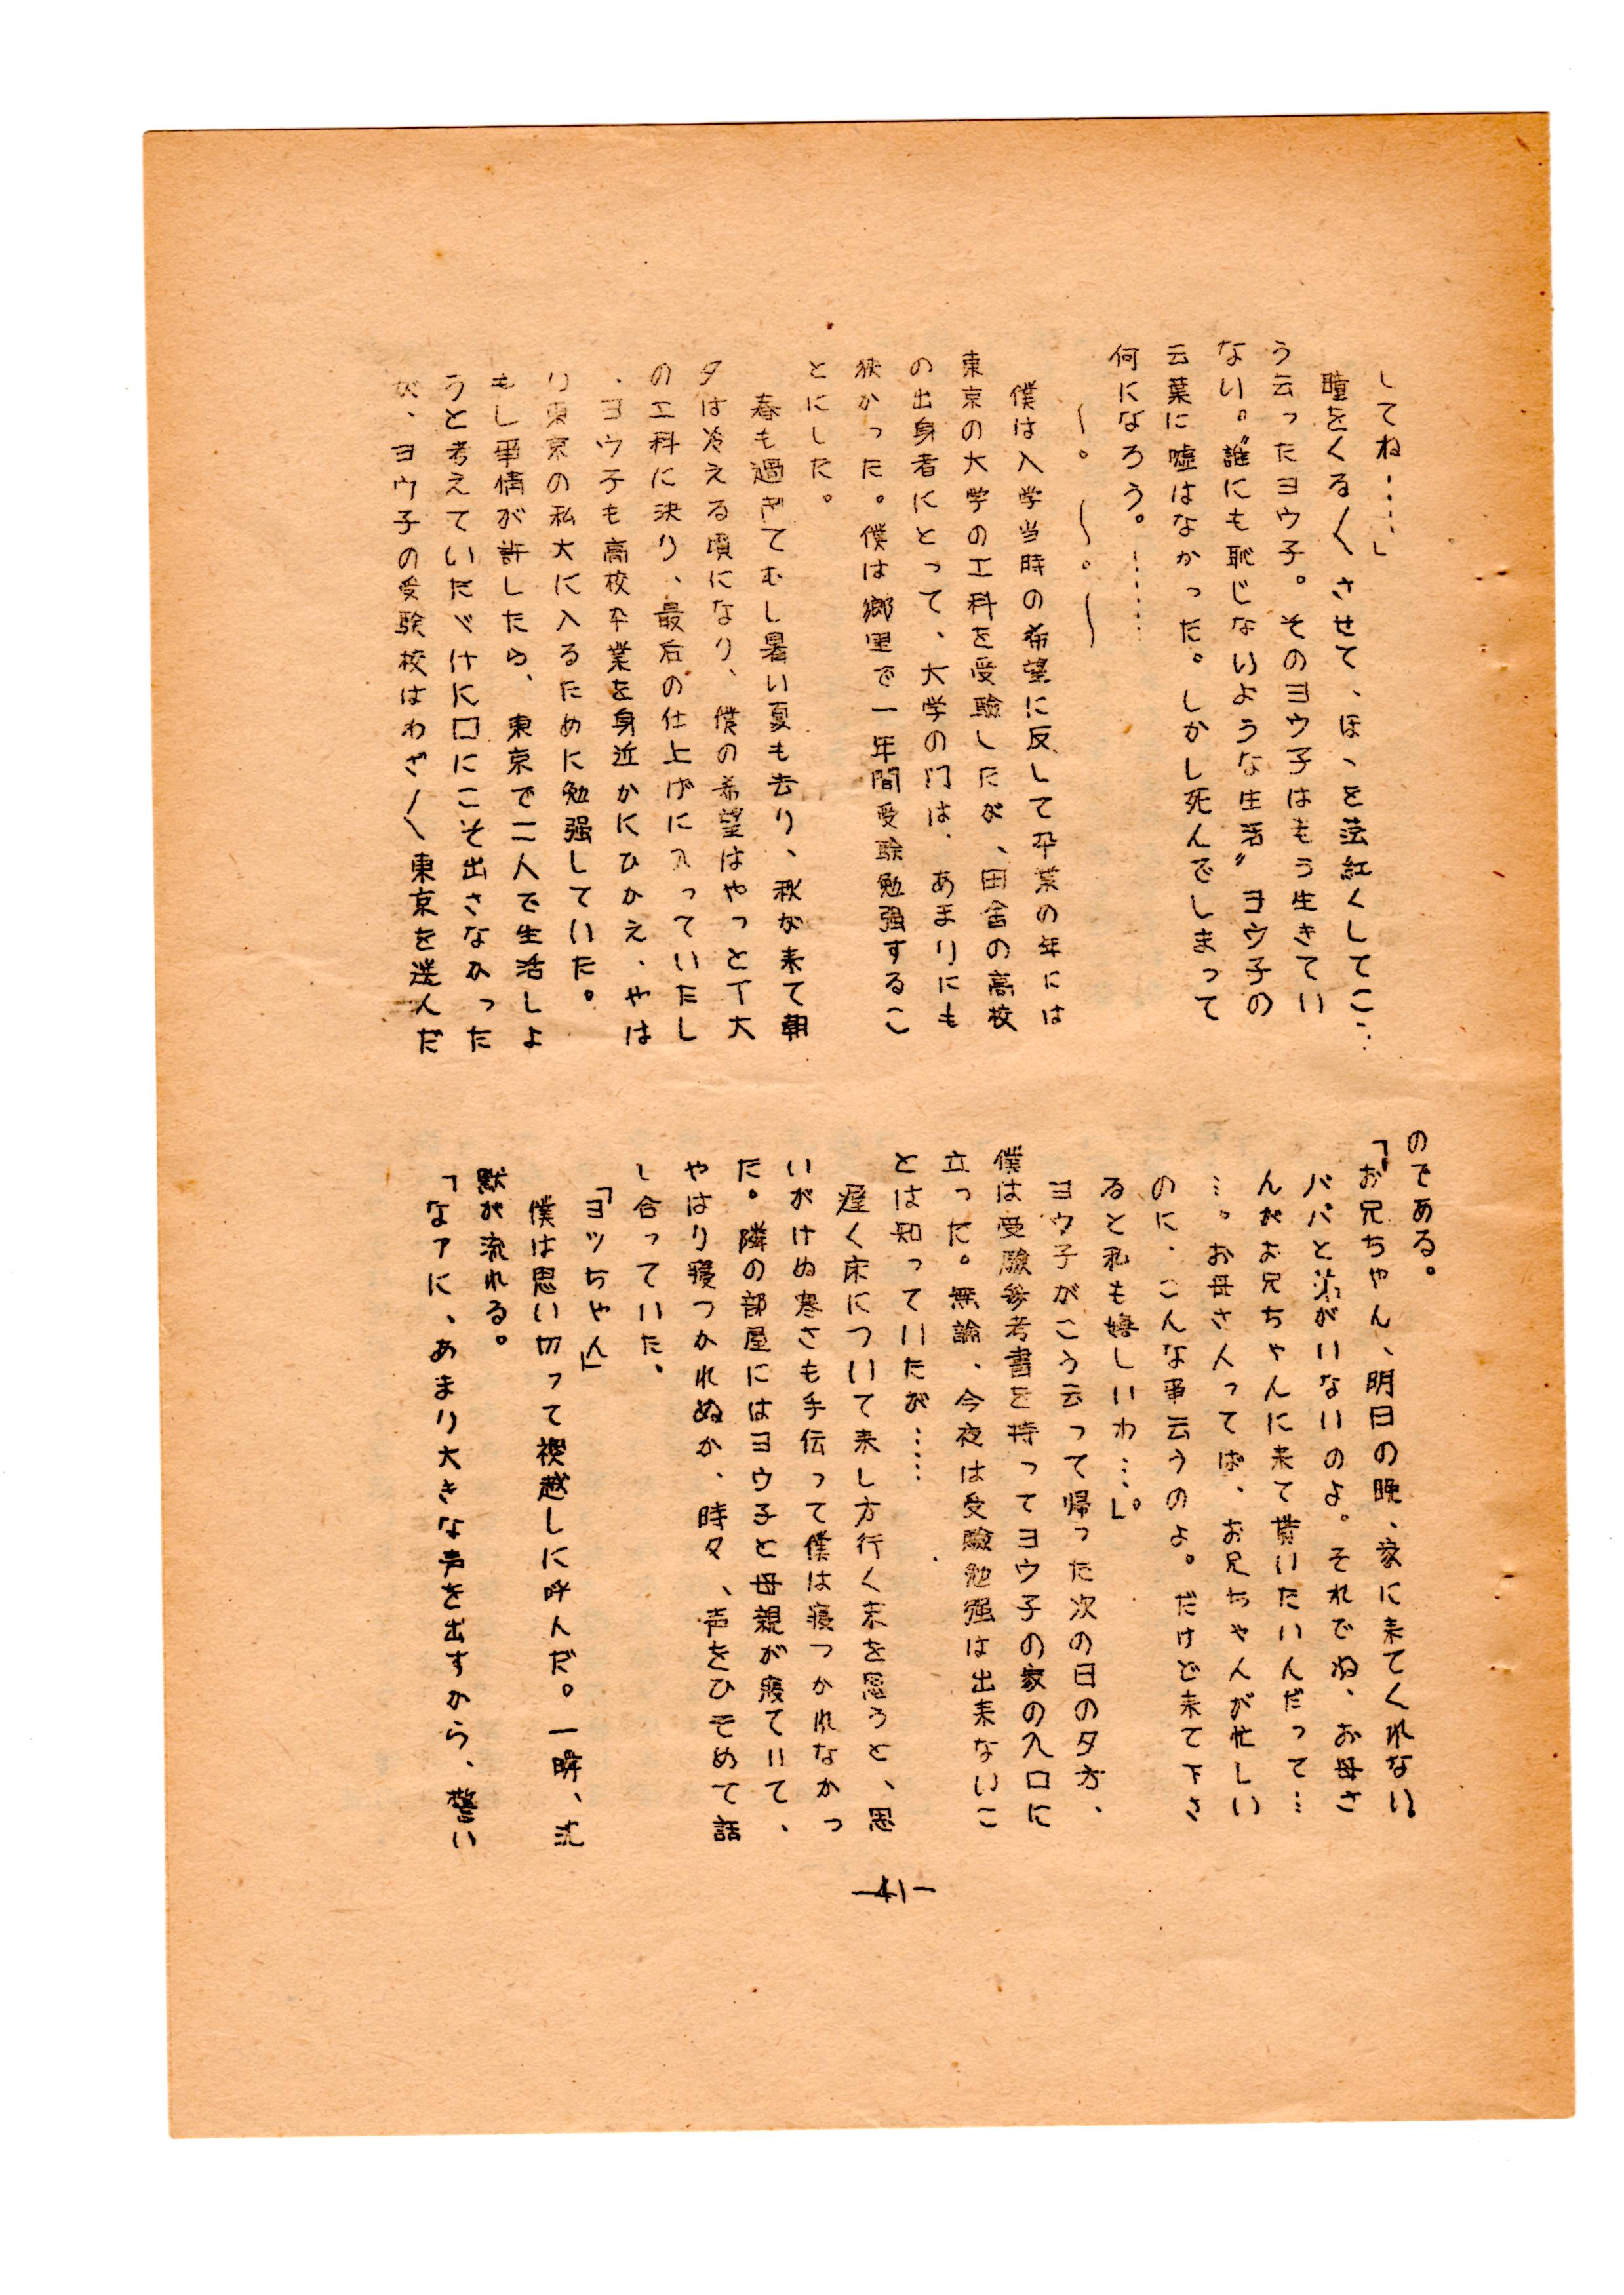 してね‥‥」
瞳をくる〱させて、ほゝを紅くしてこ‥
う云ったヨウ子。そのヨウ子はもう生きてい
ない。〝誰にも恥じないような生活〟ヨウ子の
云葉に嘘はなかった。しかし死んでしまって
何になろう。‥‥‥
〜。〜。〜
僕は入学当時の希望に反して卆業の年には
東京の大学の工科を受験したが、田舎の高校
の出身者にとって、大学の門は、あまりにも
狭かった。僕は郷里で一年間受験勉強するこ
とにした。
春も過ぎてむし暑い夏も去り、秋が来て朝
夕は冷える頃になり、僕の希望はやっとT大
の工科に決り、最后の仕上げに入っていたし
、ヨウ子も高校卆業を身近かにひかえ、やは
り東京の私大に入るために勉強していた。
もし事情が許したら、東京で二人で生活しよ
うと考えていたゞけに口にこそ出さなかった
が、ヨウ子の受験校はわざ〱東京を選んだ
のである。
「お兄ちゃん、明日の晩、家に来てくれない。
パパと弟がいないのよ。それでね、お母さ
んがお兄ちゃんに来て貰いたいんだって‥
‥。お母さんってば、お兄ちゃんが忙しい
のに、こんな事云うのよ。だけど来て下さ
ると私も嬉しいわ‥‥」。
ヨウ子がこう云って帰った次の日の夕方、
僕は受験参考書を持ってヨウ子の家の入口に
立った。無論、今夜は受験勉強は出来ないこ
とは知っていたが‥‥
遅く床について来し方行く末を思うと、思
いがけぬ寒さも手伝って僕は寝つかれなかっ
た。隣の部屋にはヨウ子と母親が寝ていて、
やはり寝つかれぬか、時々、声をひそめて話
し合っていた。
「ヨッちゃん」
僕は思い切って襖越しに呼んだ。一瞬、沈
黙が流れる。
「なアに、あまり大きな声を出すから、驚い
—41—